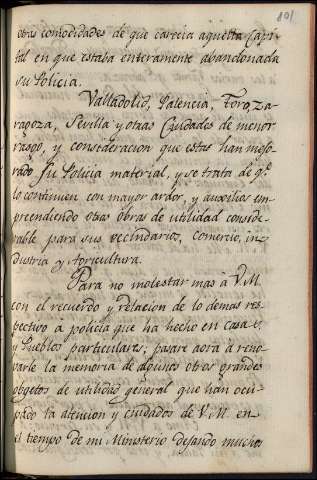 101.
otras comodidades de que carecia aquella Capi-
tal en que estaba enteramente abandonada
su Policia.
Valladolid, Palencia, Toro, Za-
ragoza, Sevilla y otras Ciudades de menor
rango, y consideracion que estas han mejo-
rado su Policia material, y se trata de qe.
lo continuen con mayor ardor, y auxilios em-
preendiendo otras obras de utilidad conside-
rable para sus vecindarios, comercio, in-
dustria y Agricultura.
Para no molestar mas à V.M.
con el recuerdo y relacion de lo demas res-
pectivo a policia que ha hecho en casas,
y Pueblos particulares; pasaré aora à reno-
varle la memoria de algunos otros grandes
objetos de utilidad general que han ocu-
pado la atencion y cuidados de V.M. en
el tiempo de mi Ministerio dejando muchos